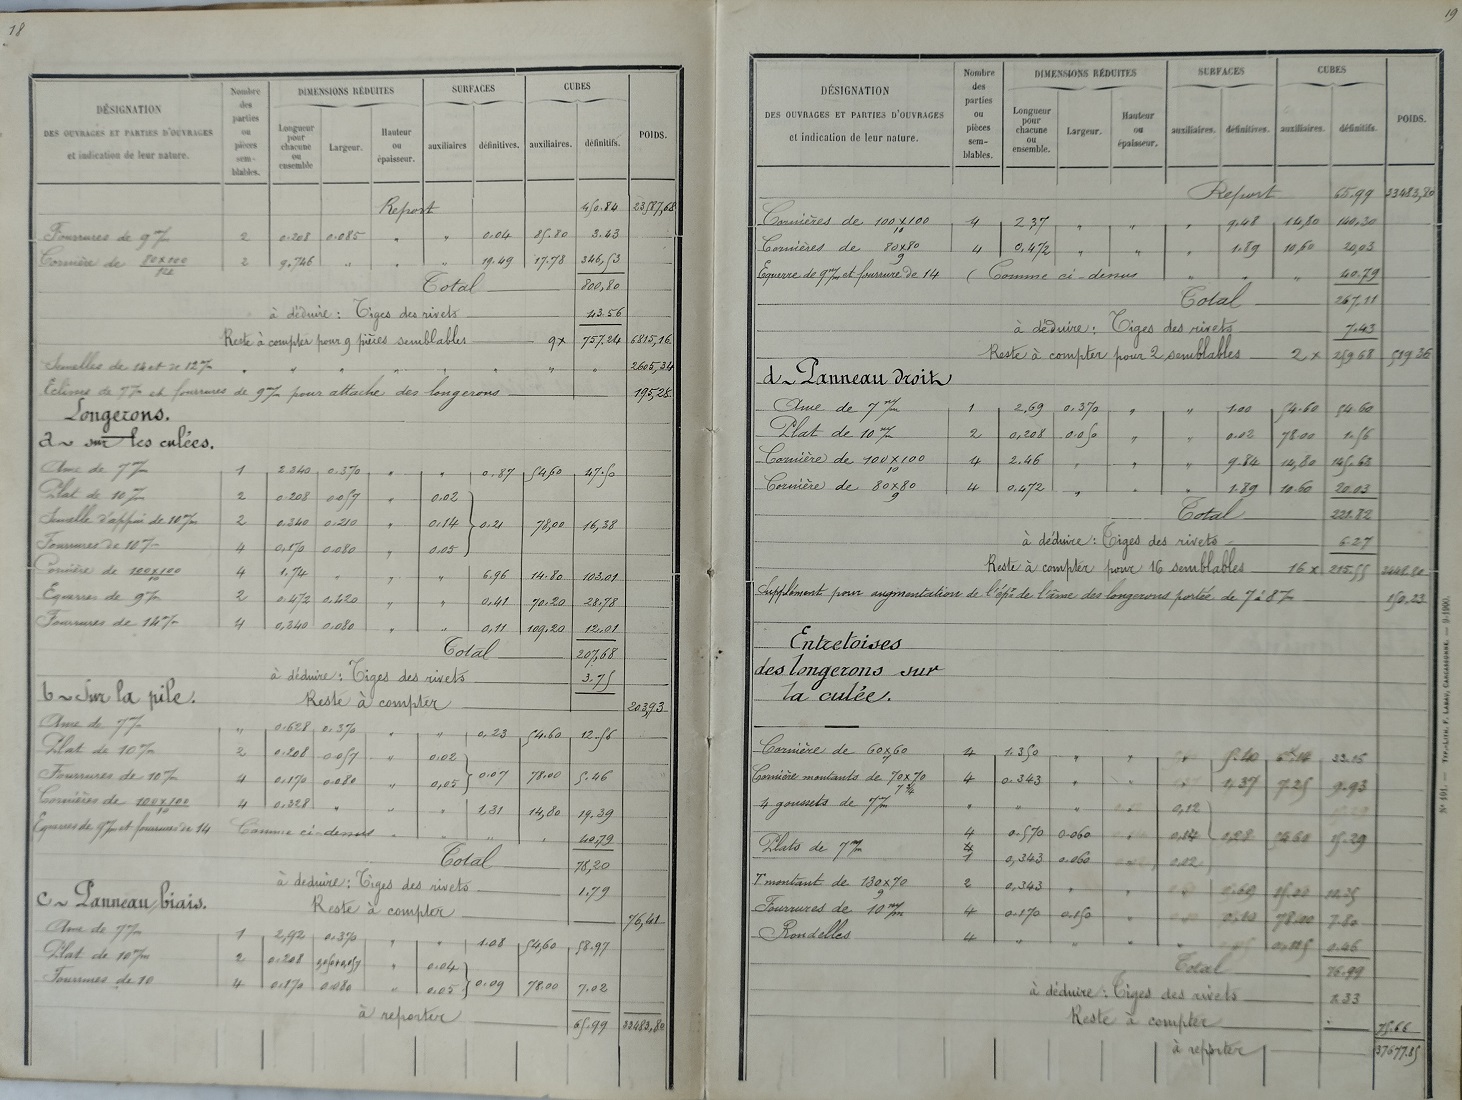 18
DÉSIGNATION
DES OUVRAGES ET PARTIES D'OUVRAGES
et indication de leur nature.
Nombre des parties ou pièces sem- blables.
DIMENSIONS RÉDUITES
Longueur pour chacune ou ensemble
Largeur.
Hauteur ou épaisseur.
SURFACES
auxiliaires
définitives.
CUBES
auxiliaires.
définitifs.
POIDS.
Report 450.84 23587,68
Fourrures de 9 m/m 2 0.208 0.085 " " 0.04 85.80 3.43
Cornière de 80x100/14 2 9.746 " " " 19.49 17.78 346,53
Total 800,80
à déduire : Tiges des rivets 43.56
Reste à compter pour 9 pièces semblables 9x 757.24 6815,16
Semelles de 14 et de 12 m/m " " " " " " " " 2605,34
Eclisses de 7 m/m et fourrures de 9 m/m pour attache des longerons 195,28
Longerons.
a ~ sur les culées.
Ame de 7 m/m 1 2.340 0.370 " " 0.87 54,60 47.50
Plat de 10 m/m 2 0.208 0.057 " 0.02
Semelle d'appui de 10 m/m 2 0.340 0.210 " 0.14 0.21 78,00 16,38
Fourrures de 10 m/m 4 0.170 0.080 " 0.05
Cornière de 100x100/10 4 1.74 " " " 6.96 14.80 103.01
Equerres de 9 m/m 2 0.472 0.420 " " 0.41 70.20 28.78
Fourrures de 14 m/m 4 0,340 0.080 " " 0,11 109.20 12.01
Total 207,68
à déduire : Tiges des rivets 3.75
b ~ Sur la pile. Reste à compter 203,93
Ame de 7 m/m " 0.628 0.370 " " 0.23 54.60 12.56
Plat de 10 m/m 2 0.208 0.057 " 0.02
Fourrures de 10 m/m 4 0.170 0.080 " 0,05 0.07 78.00 5.46
Cornières de 100x100/10 4 0.328 " " " 1,31 14,80 19.39
Equerres de 9 m/m et fourrures de 14 Comme ci-dessus " " " " 40.79
Total 78,20
à déduire : Tiges des rivets 1.79
c ~ Panneau biais. Reste à compter 76,41
Ame de 7 m/m 1 2,92 0.370 " " 1.08 54,60 58.97
Plat de 10 m/m 2 0.208 " 0.04
Fourrures de 10 4 0.170 0.080 " 0.05 0.09 78.00 7.02
à reporter 65.99 33483,80
19
DÉSIGNATION
DES OUVRAGES ET PARTIES D'OUVRAGES
et indication de leur nature.
Nombre des parties ou pièces sem- blables.
DIMENSIONS RÉDUITES
Longueur pour chacune ou ensemble.
Largeur.
Hauteur ou épaisseur.
SURFACES
auxiliaires.
définitives.
CUBES
auxiliaires.
définitifs.
POIDS.
Report 65.99 33483,80
Cornières de 100x100/10 4 2.37 " " " 9.48 14,80 140,30
Cornières de 80x80/9 4 0,472 " " " 1.89 10,60 20,03
Equerre de 9 m/m et fourrure de 14 ( Comme ci-dessus " " " 40.79
Total 267.11
à déduire : Tiges des rivets 7.43
Reste à compter pour 2 semblables 2 x 259.68 519.36
d ~ Panneau droit
Ame de 7 m/m 1 2,69 0.370 " " 1.00 54.60 54.60
Plat de 10 m/m 2 0,208 0.050 " " 0.02 78.00 1.56
Cornière de 100x100/10 4 2.46 " " " 9.84 14,80 145.63
Cornière de 80x80/9 4 0,472 " " " 1.89 10.60 20.03
Total 221.82
à déduire : Tiges des rivets 6.27
Reste à compter pour 16 semblables 16 x 215.55 3448.80
Supplément pour augmentation de l'épr de l'âme des longerons portée de 7 à 8 m/m 150.23
Entretoises
des longerons sur
la culée.
Cornière de 60x60 4 1.350 " " " 5.40 33.16
Cornière montants de 70x70 4 0.343 " " " 1,37 7.25 9.93
4 goussets de 7 m/m " " " 0,12
4 0.570 0.060 0.14 0,28 54.60 15.29
Plats de 7 m/m 1 0,343 0.060 0.02
T montant de 130x70/9 2 0.343 " " 0.69 15.00 10.35
Fourrures de 10 m/m 4 0.170 0.150 " 0.10 78.00 7.80
Rondelles 4 " " " " 0.46
Total 76.99
à déduire : Tiges des rivets 1.33
Reste à compter 75.66
à reporter 37677.85
Nº 101. — Typ.-Lith. F. Labau, Carcassonne. — 9-1900.